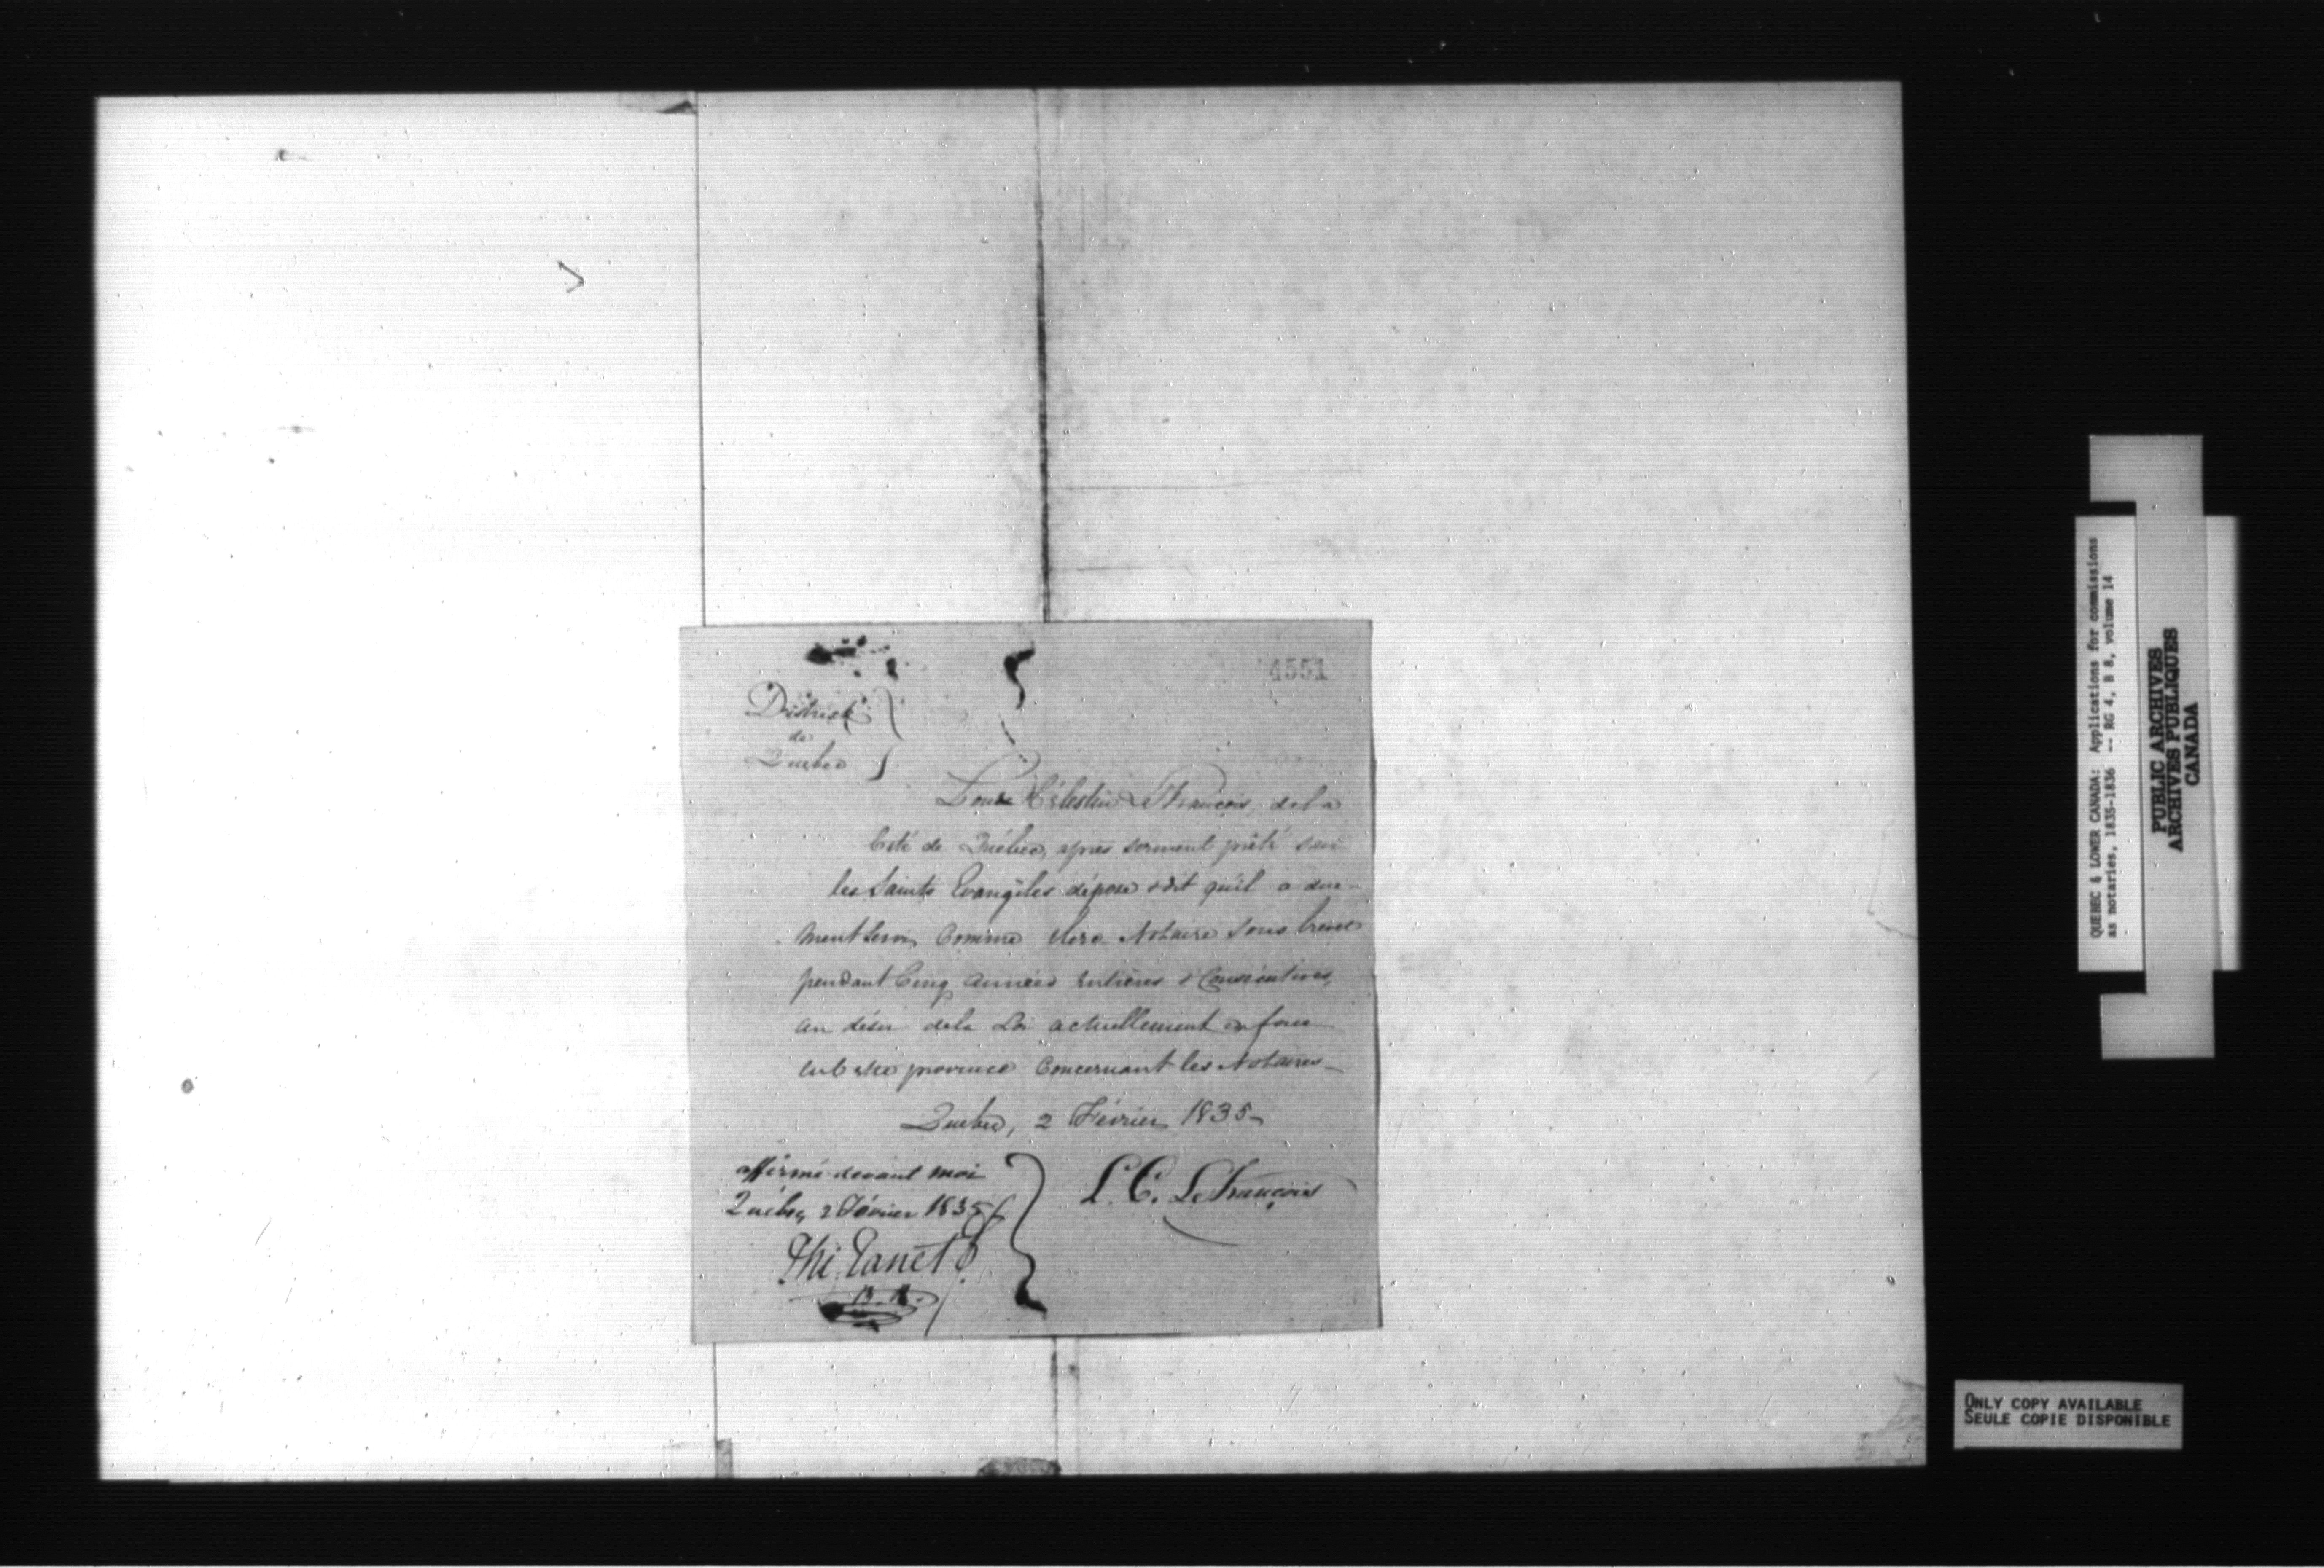 4551
District
de
Quebec
Louis Célestin LeFrançois, de la
Cité de Québec, après serment prêté sur
les Saints Evangiles dépose & dit qu'il a due-
ment servi Comme Clerc Notaire sous brevet
pendant Cinq années entières & Consécutives,
au désir de la Loi actuellement en force
en cette province Concernant les Notaires—
Quebec, 2 Février 1835—
affirmé devant moi
Québec 2 Février 1835
L. C. LeFrançois
B. R.
QUEBEC & LOWER CANADA: Applications for commissions
as notaries, 1835-1836 -- RG 4, B 8, volume 14
PUBLIC ARCHIVES
ARCHIVES PUBLIQUES
CANADA
ONLY COPY AVAILABLE
SEULE COPIE DISPONIBLE